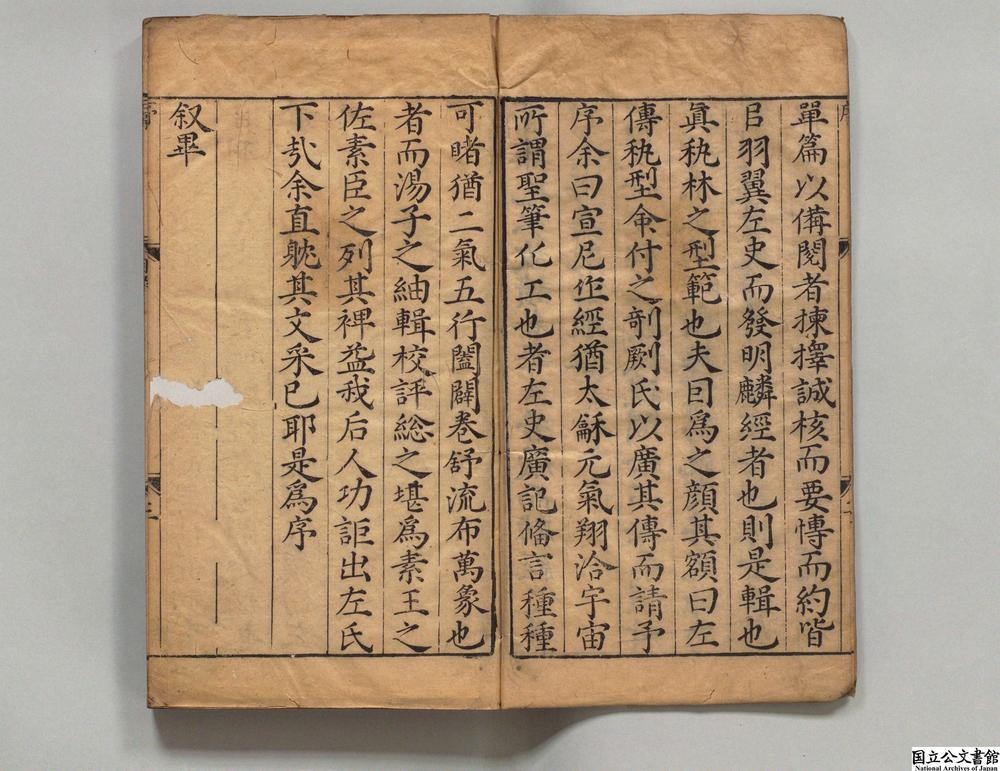 單篇以備閱者揀擇誠核而要慱而約皆
㠯羽翼左史而發明麟經者也則是輯也
眞秇林之型範也夫因爲之顔其額曰左
傳秇型僉付之剞劂氏以廣其傳而請予
序余曰宣尼作經猶太龢元氣翔洽宇宙
所謂聖筆化工也者左史廣記俻言種種
可睹猶二氣五行闔闢卷舒流布萬象也
者而湯子之紬輯校評総之堪爲素王之
佐素臣之列其裨益我后人功詎出左氏
下㢤余直躭其文采已耶是爲序
叙畢
序
二
国立公文書館
National Archives of Japan